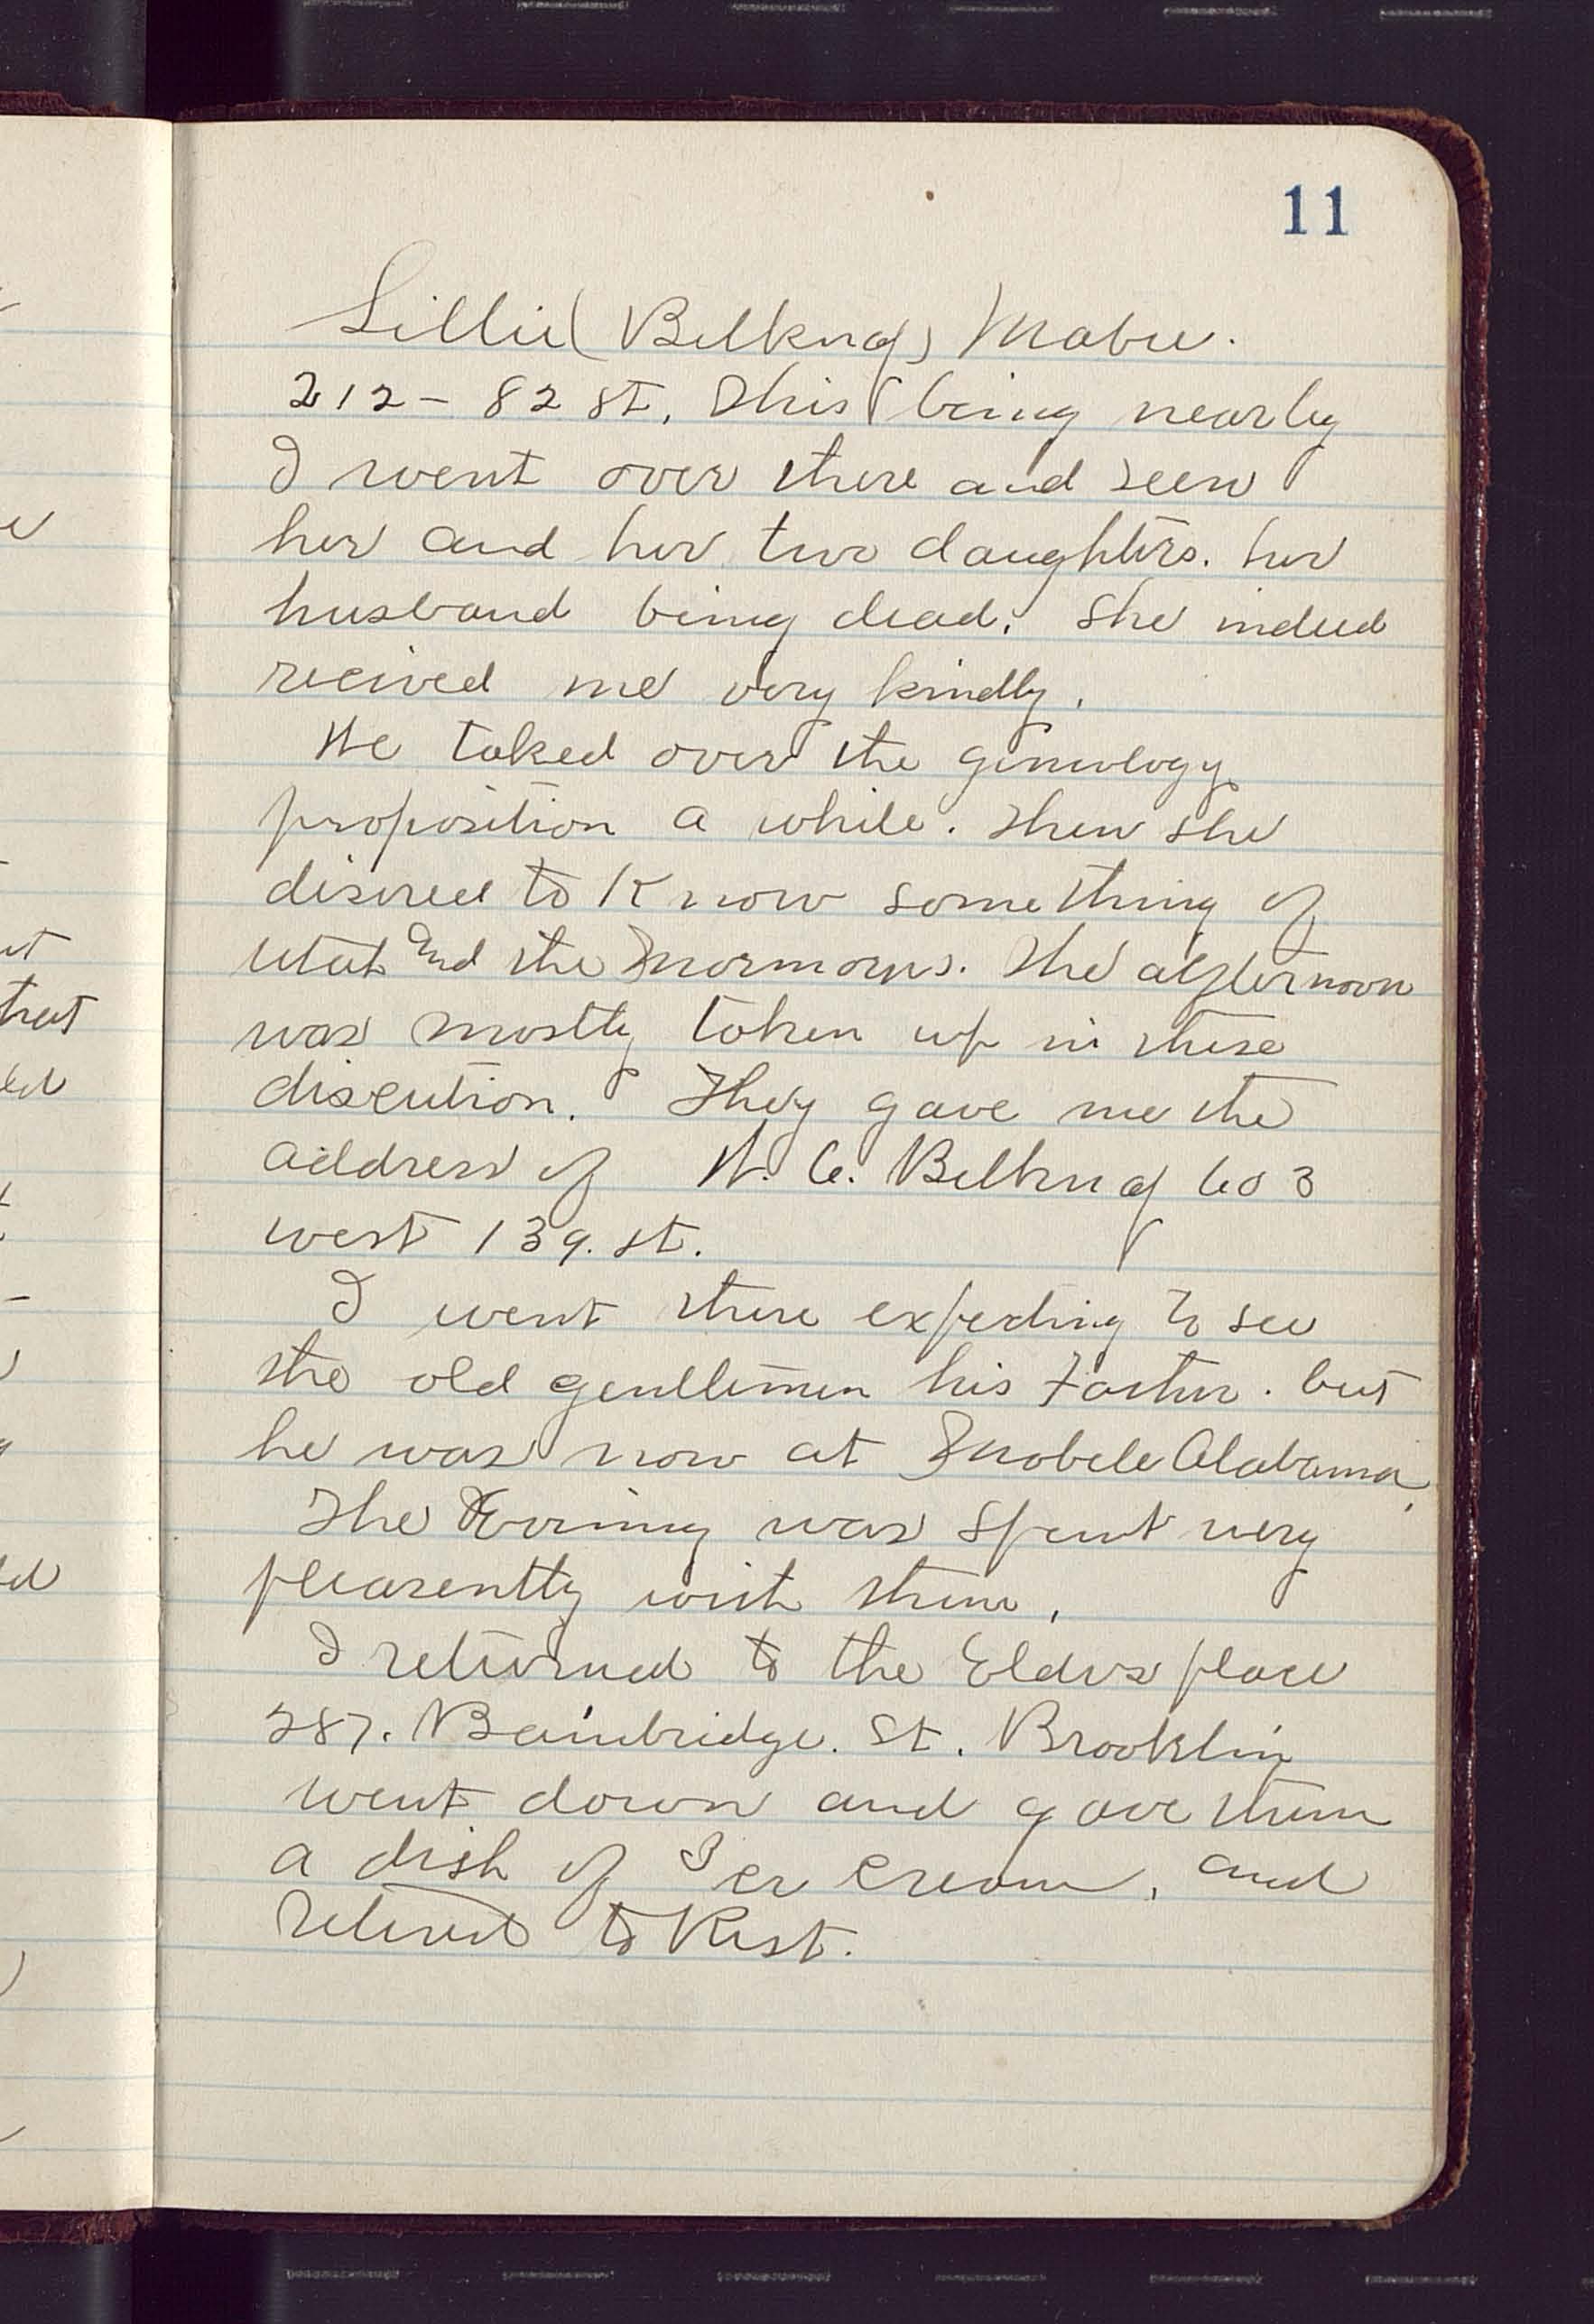 11
Lillie (Belknap) Mabie.
212 - 82 St. This being nearby
I went over there and seen
her and her two daughters. her
husband being dead. She indeed
recived me very kindly.
We talked over the geneology
proposition a while. Then she
disired to Know something of
Utah and the Mormons. The afternoon
was mostly taken up in these
discution. They gave me the
address of W. C. Belknap 603
west 139. st.
I went there expecting to see
the old gentlemen his Father. but
he was now at Mobele Alabama.
The Evening was spent very
pleasently with them.
I returned to the Elders place
287. Bainbridge. St. Brooklin
went down and gave them
a dish of Ice cream, and
retired to Rest.
ut
hat
ed